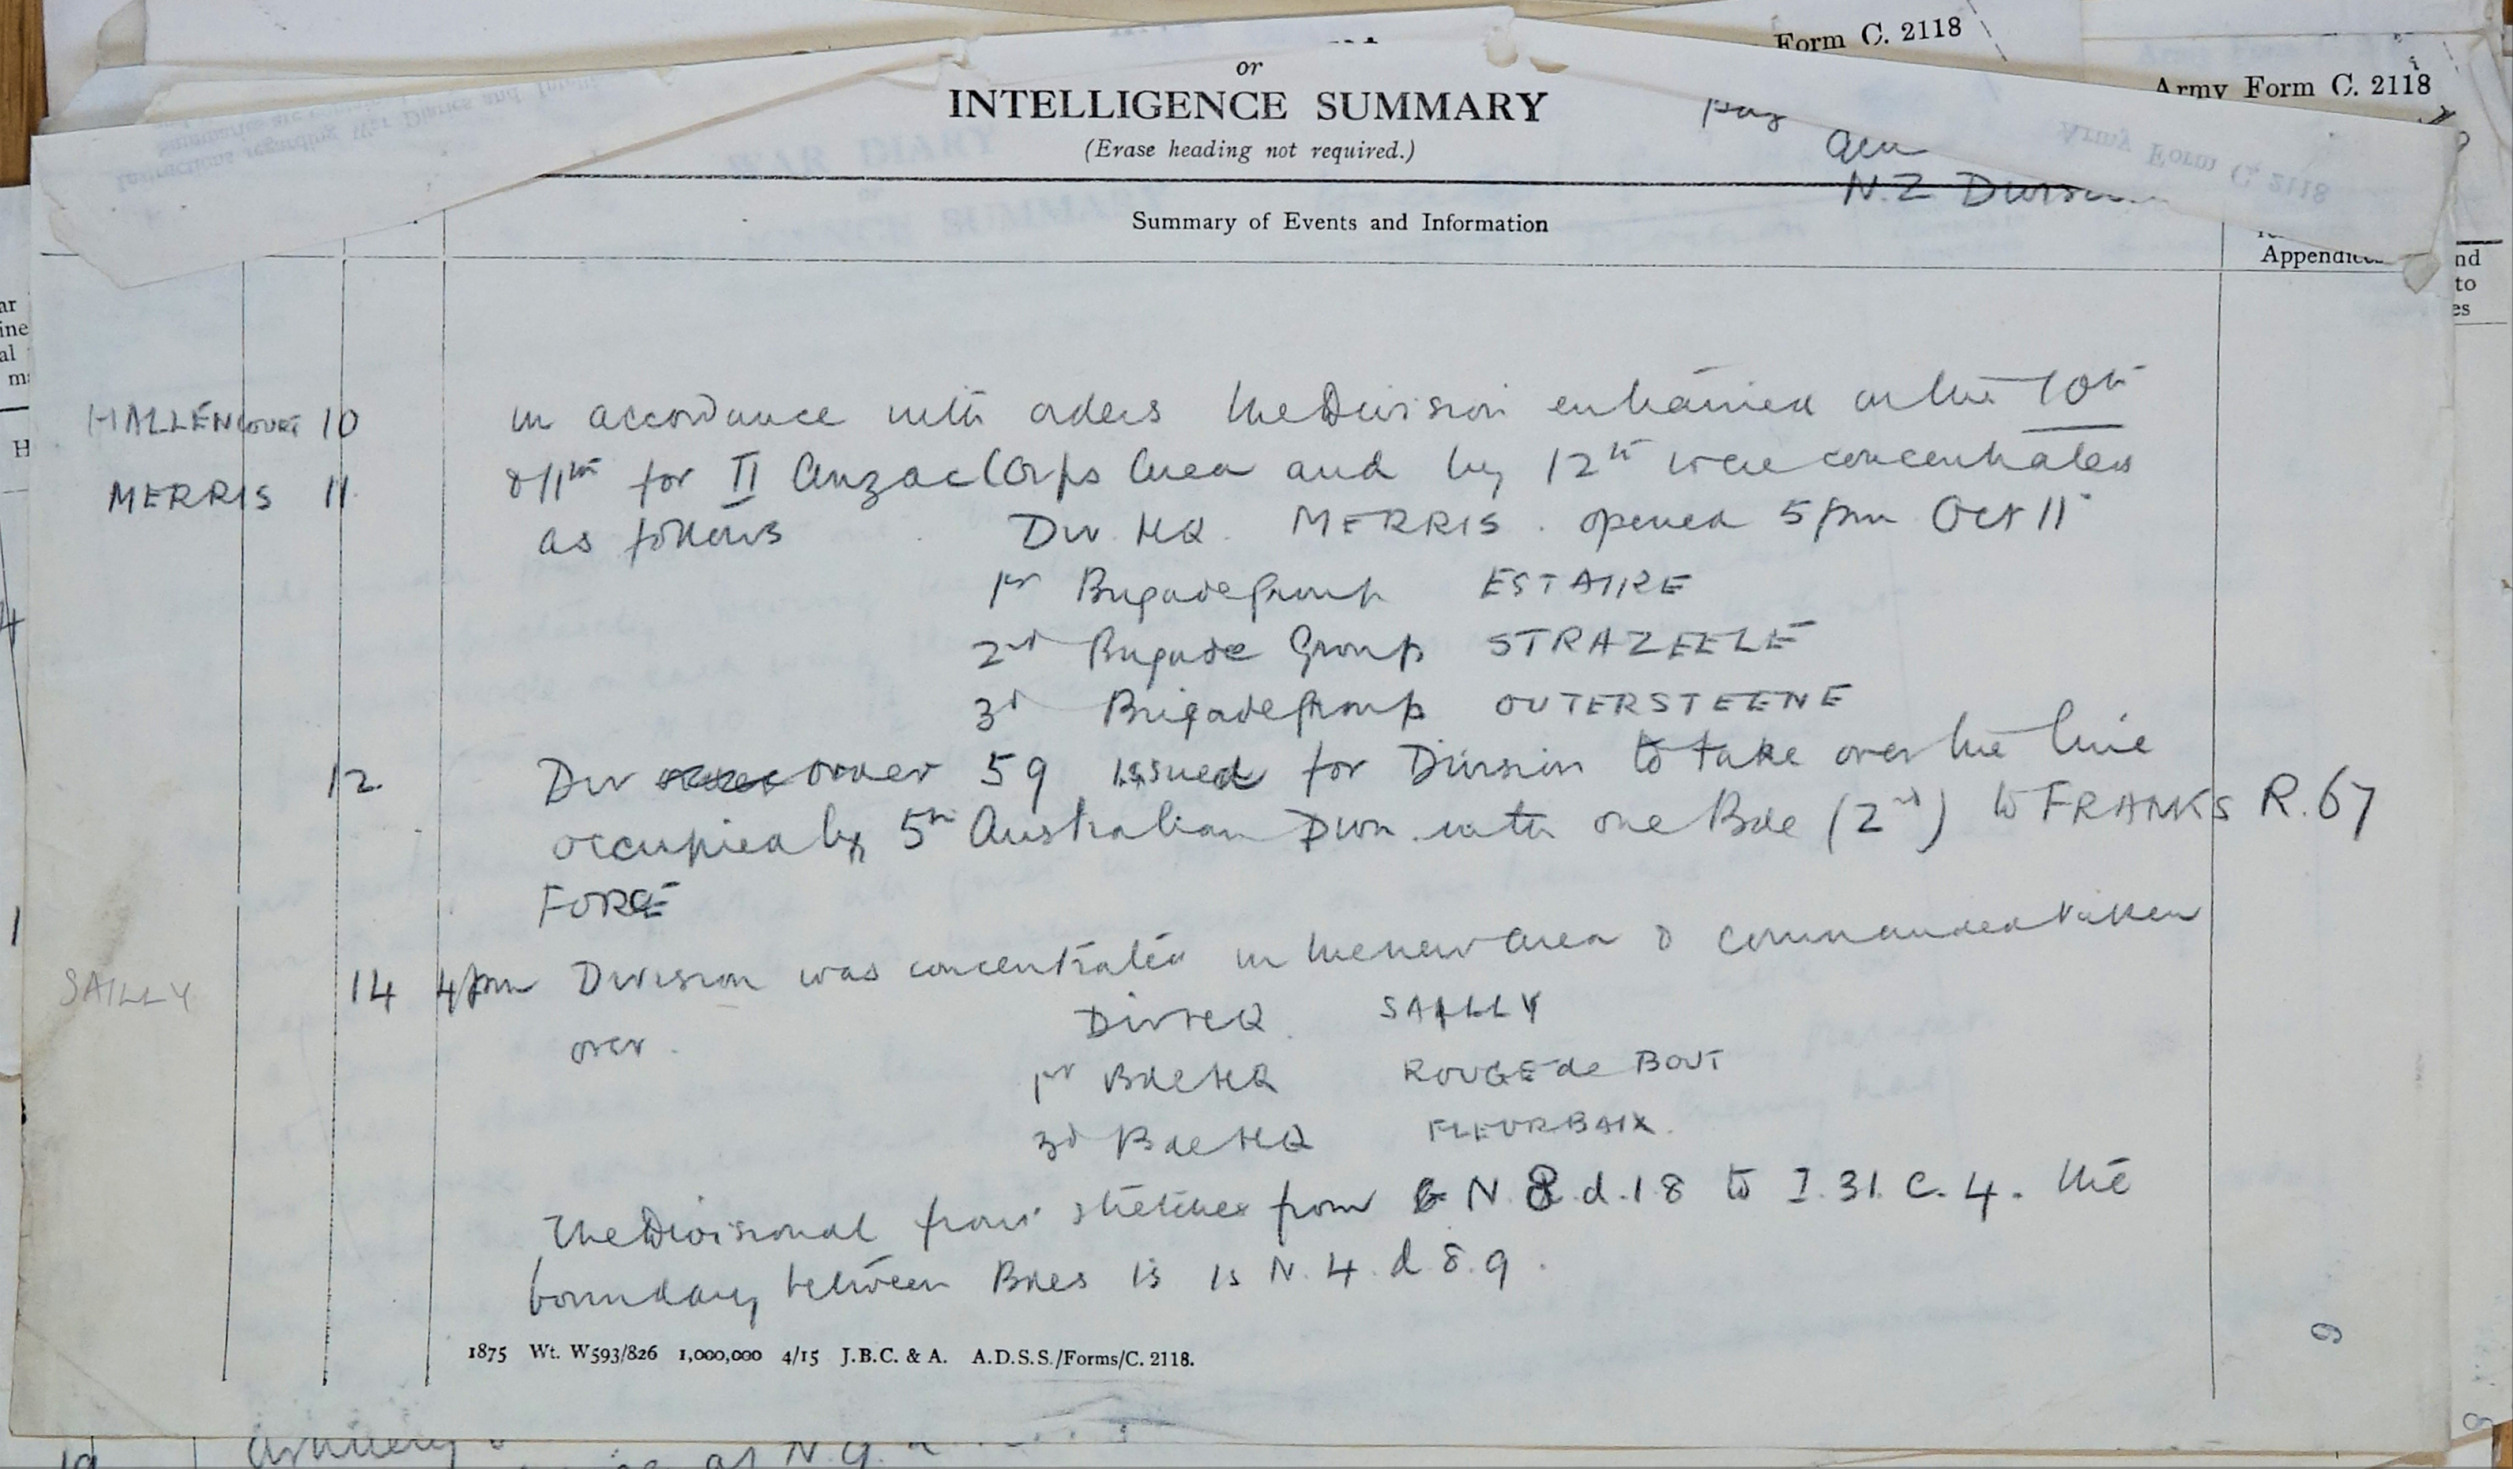 Form C. 2118
Army Form C. 2118
or
INTELLIGENCE SUMMARY
(Erase heading not required.)
N.Z Division
Summary of Events and Information
Appendices
HALLENCOURT 10 In accordance with orders the Division entrained on the 10th
MERRIS 11 & 11th for II Anzac Corps Area and by 12th were concentrated
as follows Div. HQ. MERRIS. opened 5pm Oct 11
1st Brigade Group ESTAIRE
2nd Brigade Group STRAZEELE
3d Brigade Group OUTERSTEENE
12. Div order 59 issued for Division to take over the line
occupied by 5th Australian Divn. with one Bde (2nd) to FRANKS R.67
FORCE
SAILLY 14 4pm Division was concentrated in the new area & commanded taken
over. Div HQ. SAILLY
1st Bde HQ ROUGE de BOUT
3d Bde HQ FLEURBAIX.
The Divisional front stretches from N.8.d.1.8 to I.31.c.4. the
boundary between Bdes is is N.4.d.8.9.
1875 Wt. W593/826 1,000,000 4/15 J.B.C. & A. A.D.S.S./Forms/C. 2118.